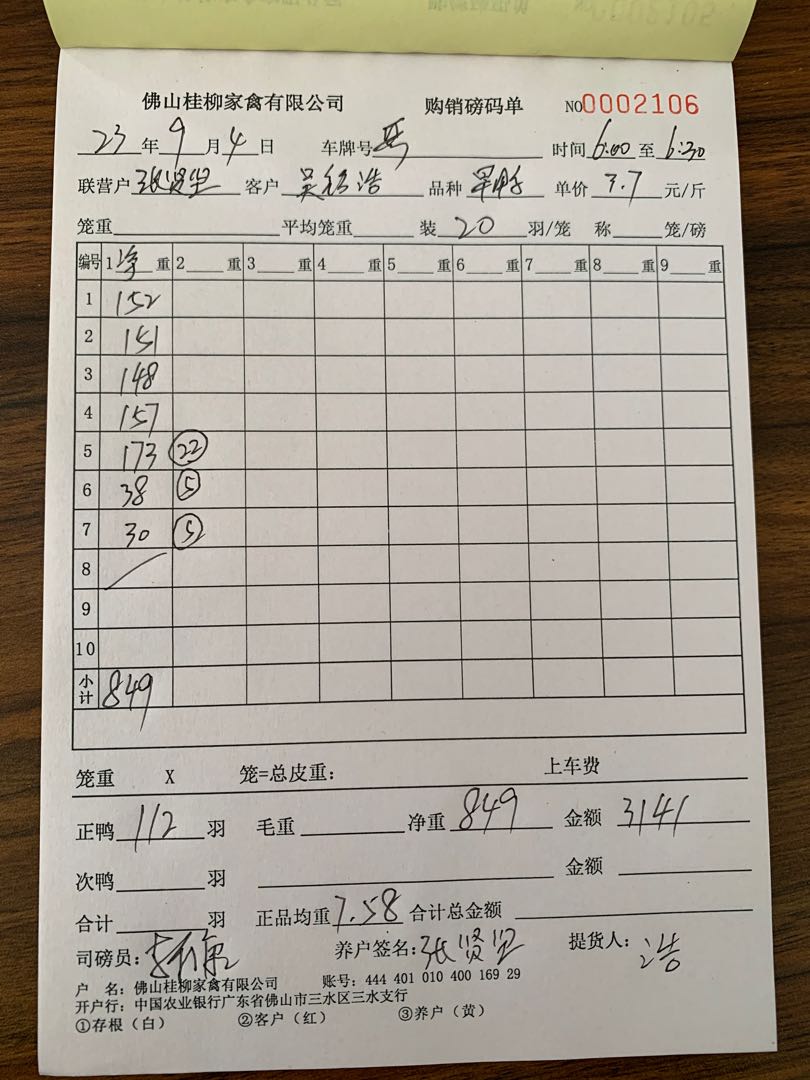 佛山桂柳家禽有限公司 购销磅码单 NO0002106
23年9月4日 车牌号 时间6:00至6:30
联营户张贤坚 客户吴 浩 品种 单价3.7元/斤
笼重 平均笼重 装20羽/笼 称 笼/磅
编号 1净重 2 重 3 重 4 重 5 重 6 重 7 重 8 重 9 重
1 152
2 151
3 148
4 157
5 173 22
6 38 5
7 30 5
8
9
10
小计 849
笼重 X 笼=总皮重: 上车费
正鸭112羽 毛重 净重849 金额3141
次鸭 羽 金额
合计 羽 正品均重7.58 合计总金额
司磅员: 养户签名:张贤坚 提货人:浩
户 名:佛山桂柳家禽有限公司 账号:444 401 010 400 169 29
开户行:中国农业银行广东省佛山市三水区三水支行
①存根(白) ②客户(红) ③养户(黄)